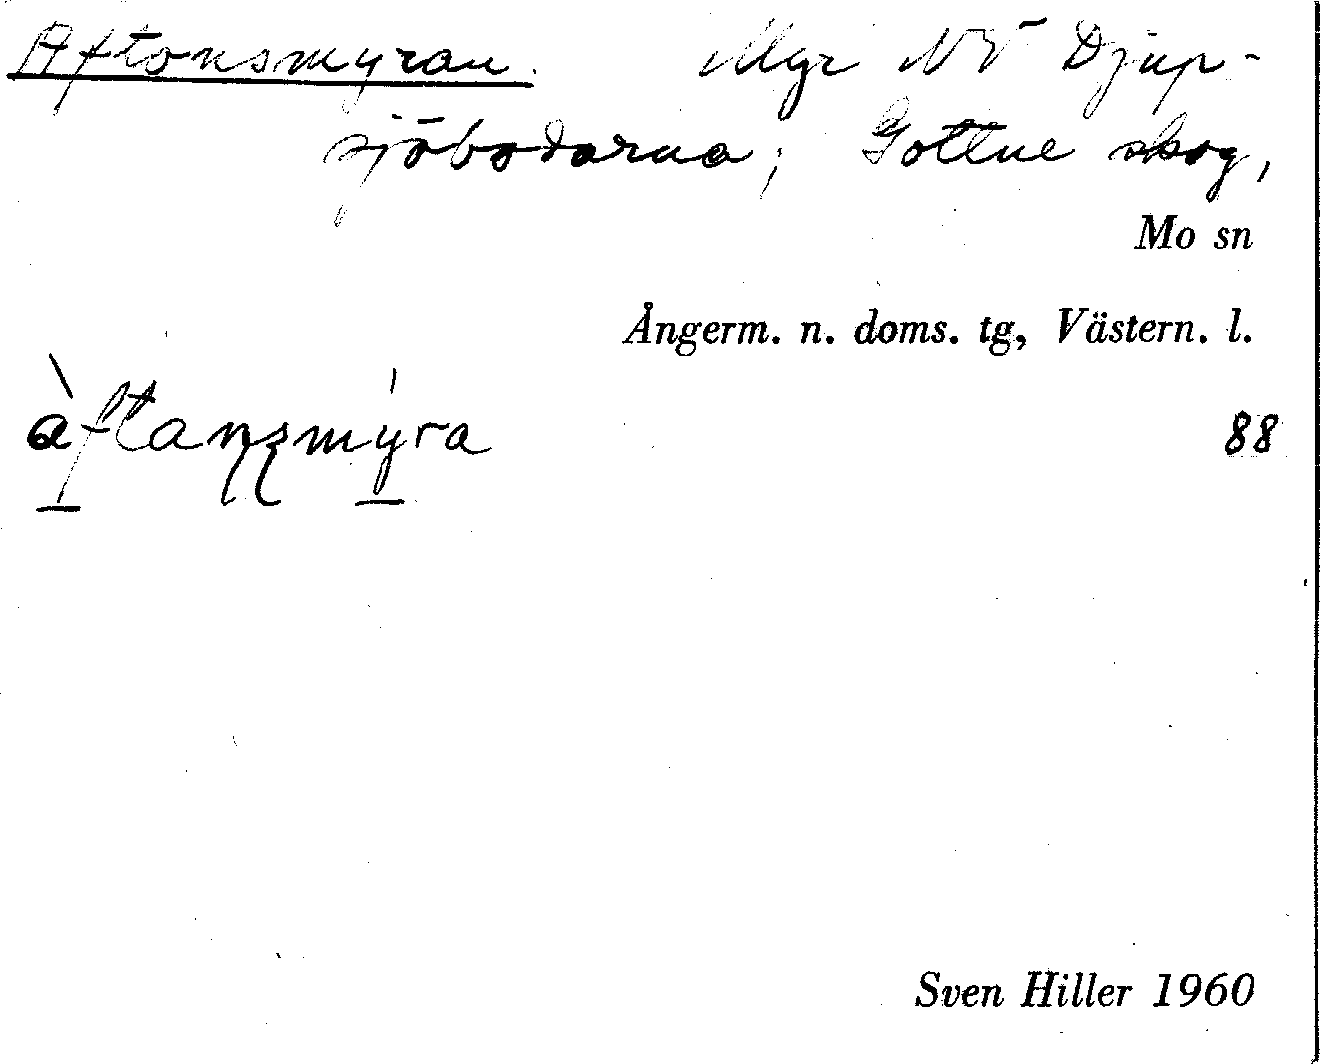 Aftonsmyran. Myr NV Djup-
sjöbodarna; Gottne skog,
Mo sn
Ångerm. n. doms. tg, Västern. l.
àftansmýra
88
Sven Hiller 1960